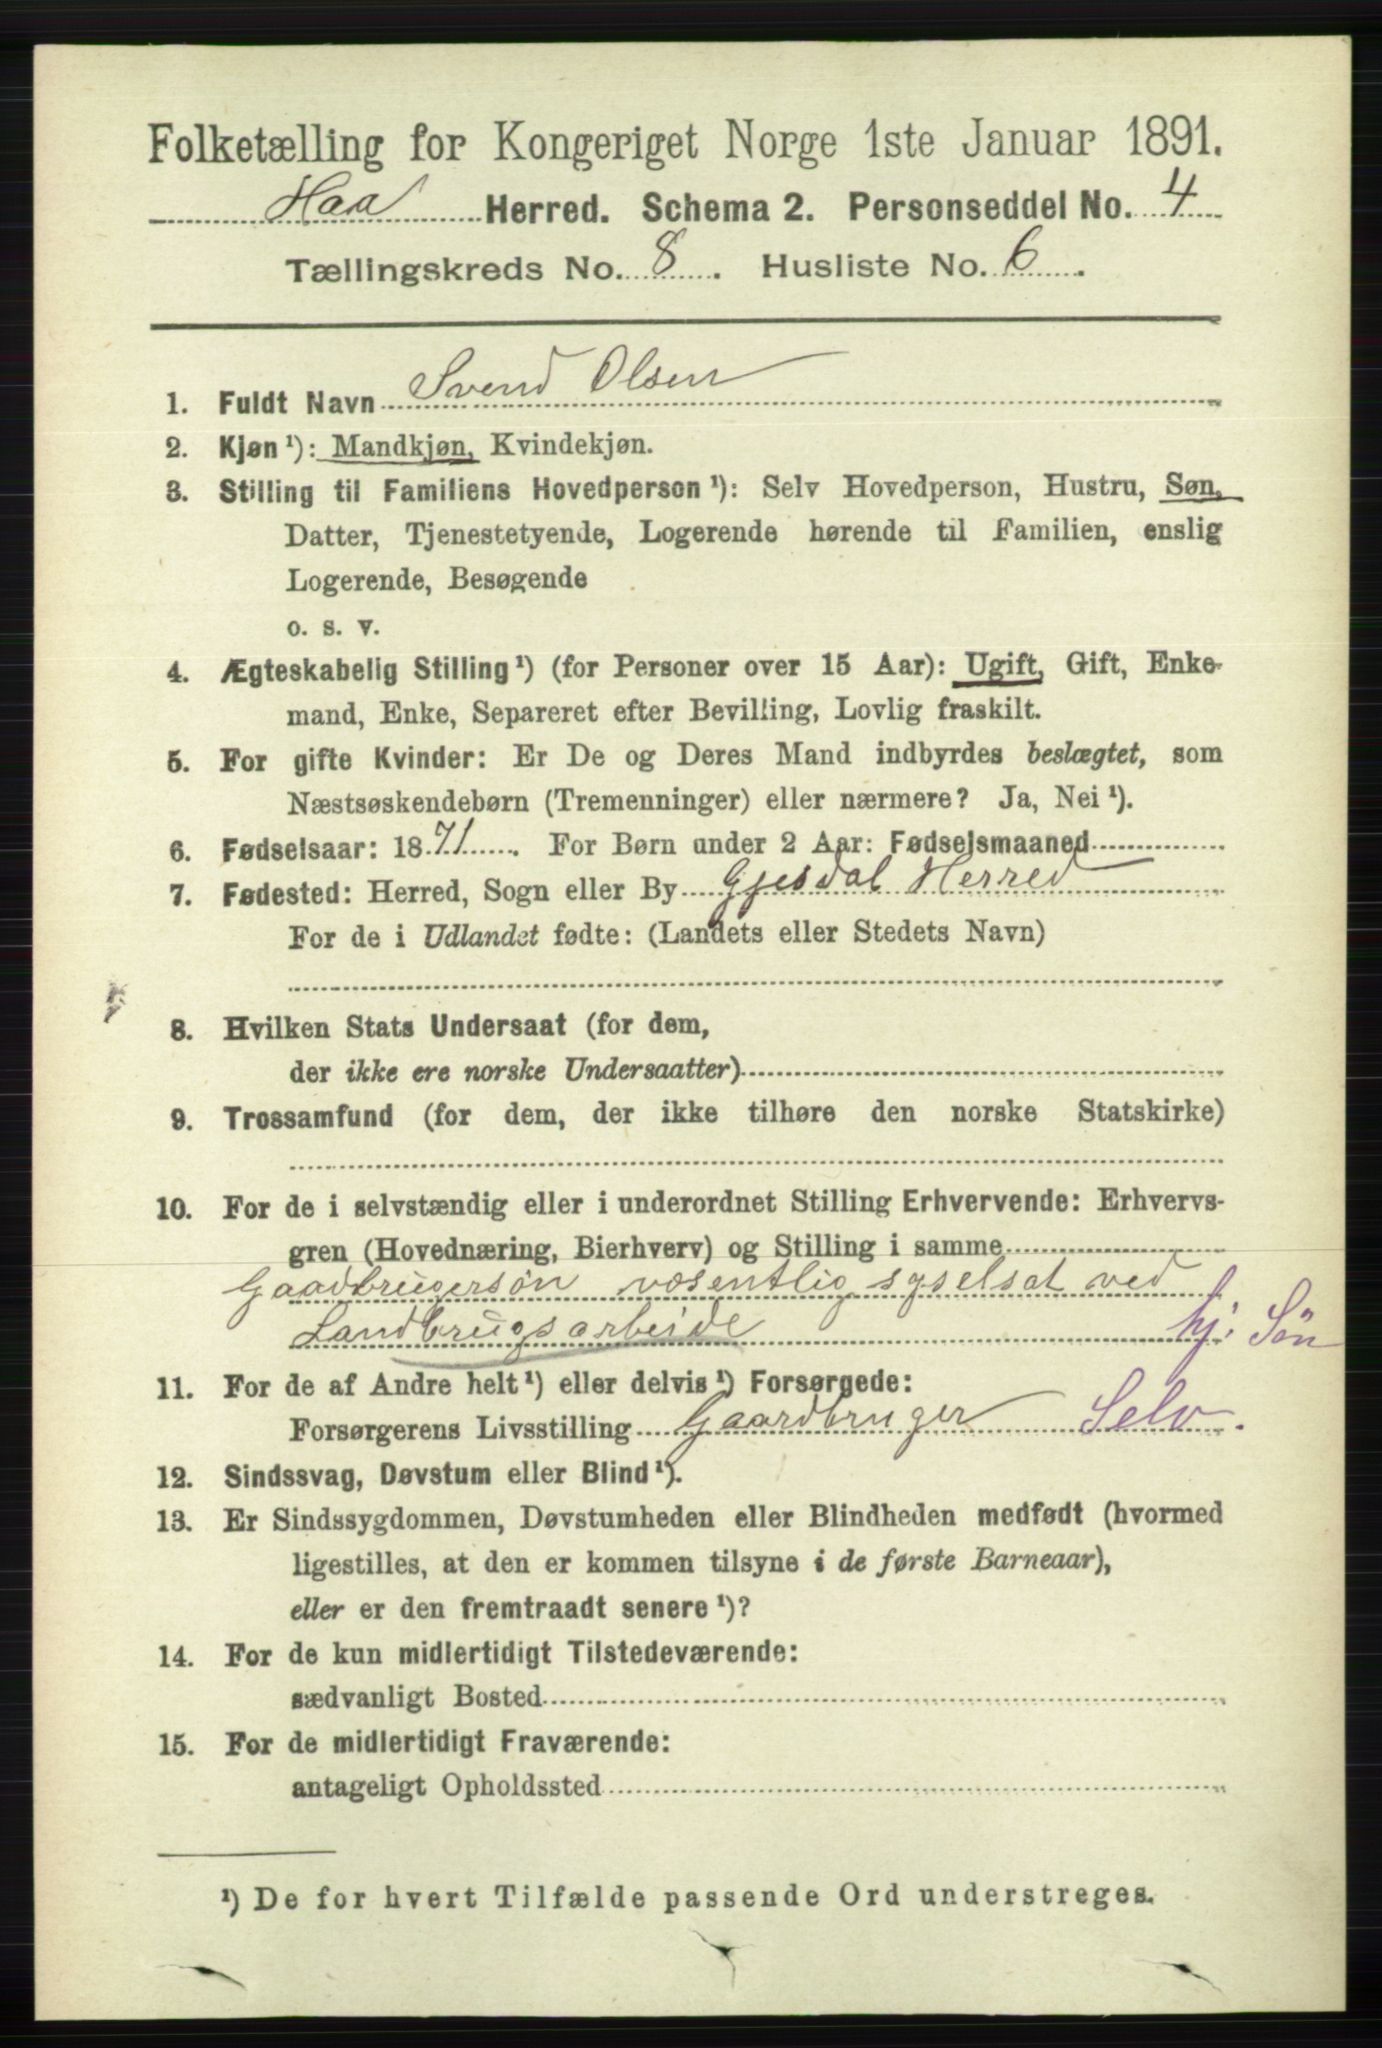 Folketælling for Kongeriget Norge 1ste Januar 1891.
Haa Herred. Schema 2. Personseddel No. 4
Tællingskreds No. 8. Husliste No. 6.
1. Fuldt Navn Svend Olsen
2. Kjøn ¹): Mandkjøn, Kvindekjøn.
3. Stilling til Familiens Hovedperson ¹): Selv Hovedperson, Hustru, Søn,
Datter, Tjenestetyende, Logerende hørende til Familien, enslig
Logerende, Besøgende
o. s. v.
4. Ægteskabelig Stilling ¹) (for Personer over 15 Aar): Ugift, Gift, Enke-
mand, Enke, Separeret efter Bevilling, Lovlig fraskilt.
5. For gifte Kvinder: Er De og Deres Mand indbyrdes beslægtet, som
Næstsøskendebørn (Tremenninger) eller nærmere? Ja, Nei ¹).
6. Fødselsaar: 1871. For Børn under 2 Aar: Fødselsmaaned
7. Fødested: Herred, Sogn eller By Gjesdal Herred
For de i Udlandet fødte: (Landets eller Stedets Navn)
8. Hvilken Stats Undersaat (for dem,
der ikke ere norske Undersaatter)
9. Trossamfund (for dem, der ikke tilhøre den norske Statskirke)
10. For de i selvstændig eller i underordnet Stilling Erhvervende: Erhvervs-
gren (Hovednæring, Bierhverv) og Stilling i samme
Gaadbrugersøn væsentlig syselsat ved
Landbrugsarbeide hj. Søn
11. For de af Andre helt ¹) eller delvis ¹) Forsørgede:
Forsørgerens Livsstilling Gaardbruger Selv.
12. Sindssvag, Døvstum eller Blind ¹).
13. Er Sindssygdommen, Døvstumheden eller Blindheden medfødt (hvormed
ligestilles, at den er kommen tilsyne i de første Barneaar),
eller er den fremtraadt senere ¹)?
14. For de kun midlertidigt Tilstedeværende:
sædvanligt Bosted
15. For de midlertidigt Fraværende:
antageligt Opholdssted
¹) De for hvert Tilfælde passende Ord understreges.